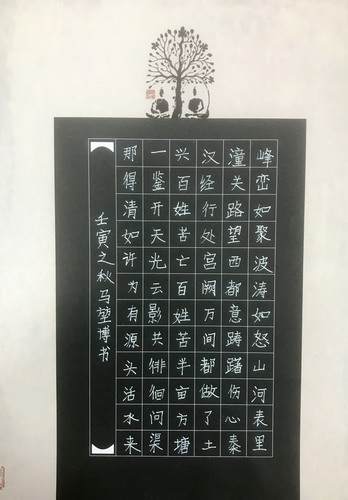 峰峦如聚波涛如怒山河表里
潼关路望西都意踌躇伤心秦
汉经行处宫阙万间都做了土
兴百姓苦亡百姓苦半亩方塘
一鉴开天光云影共徘徊问渠
那得清如许为有源头活水来
壬寅之秋马堃博书